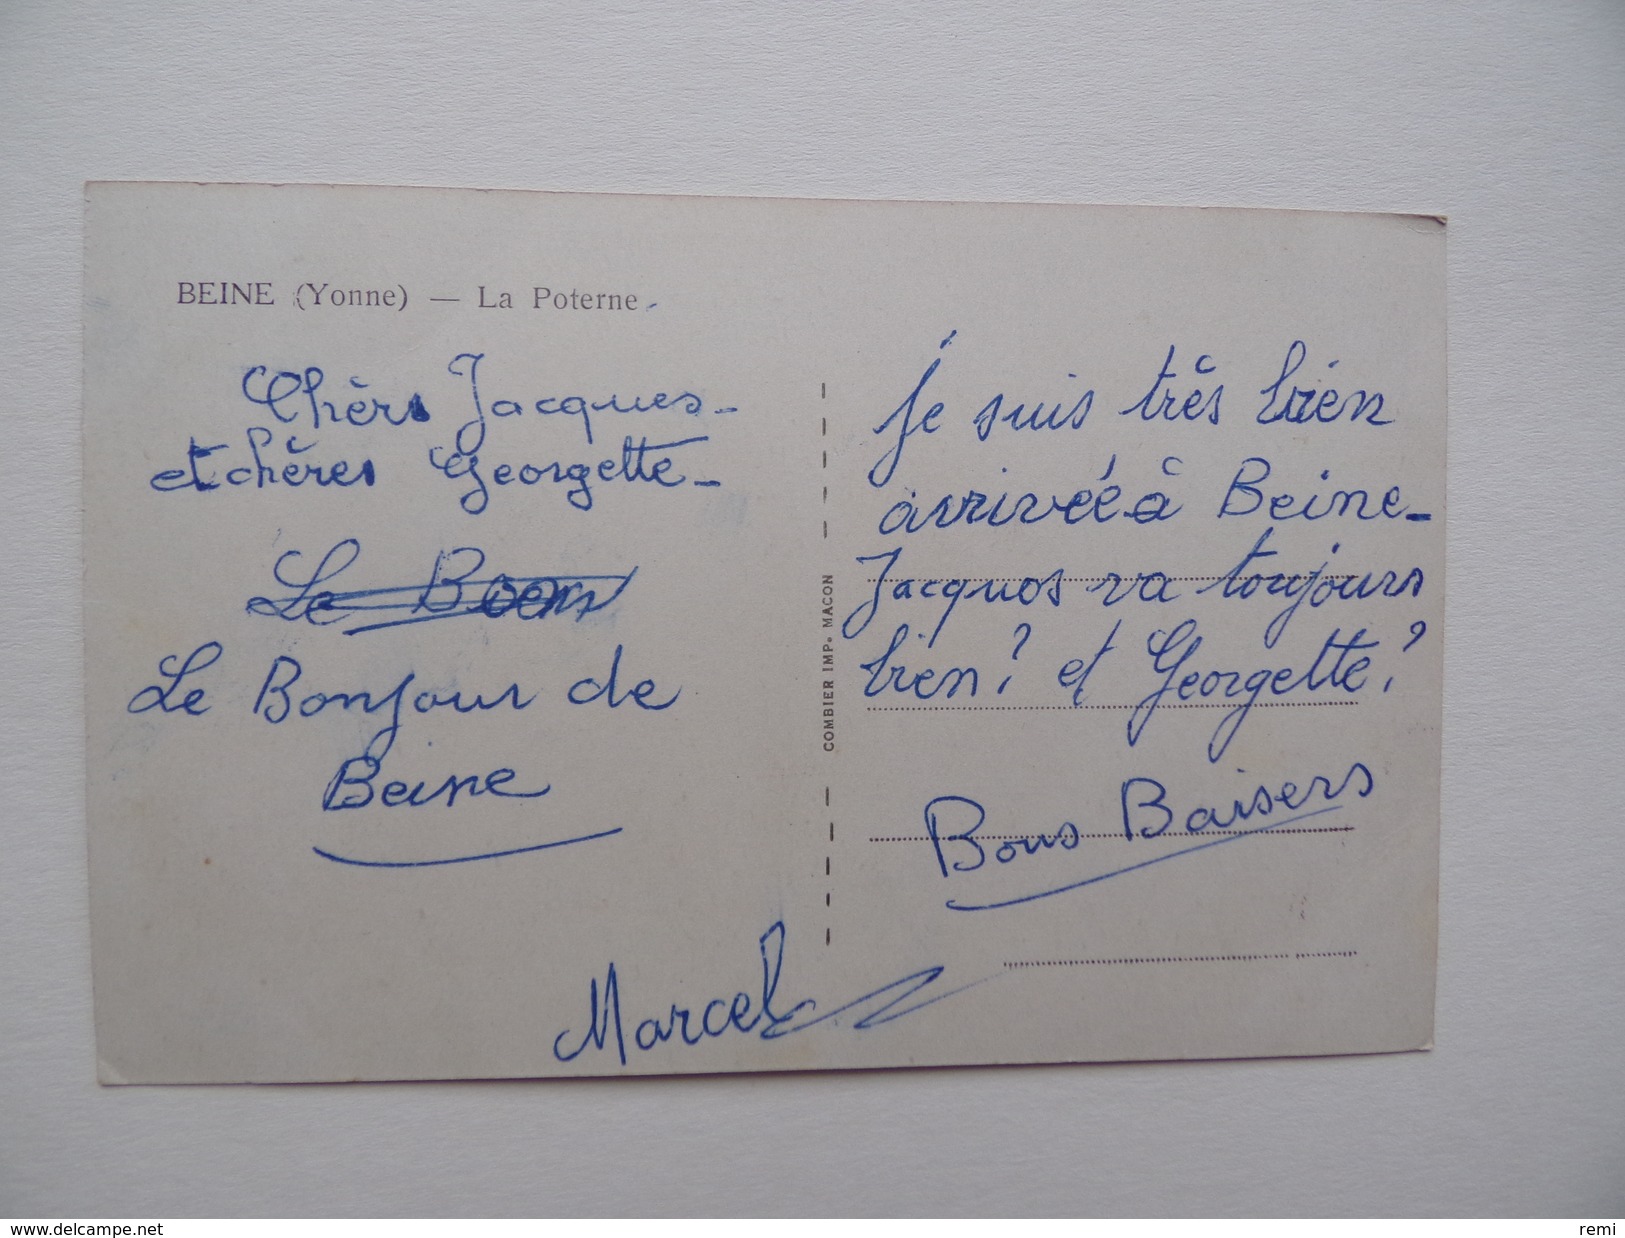 BEINE (Yonne) — La Poterne
Chèrs Jacques-
et chères Georgette-
Le Bonjour de
Beine
COMBIER IMP. MACON
Je suis très bien
arrivée à Beine-
Jacques va toujours
bien? et Georgette?
Bons Baisers
Marcel
www.delcampe.net
remi